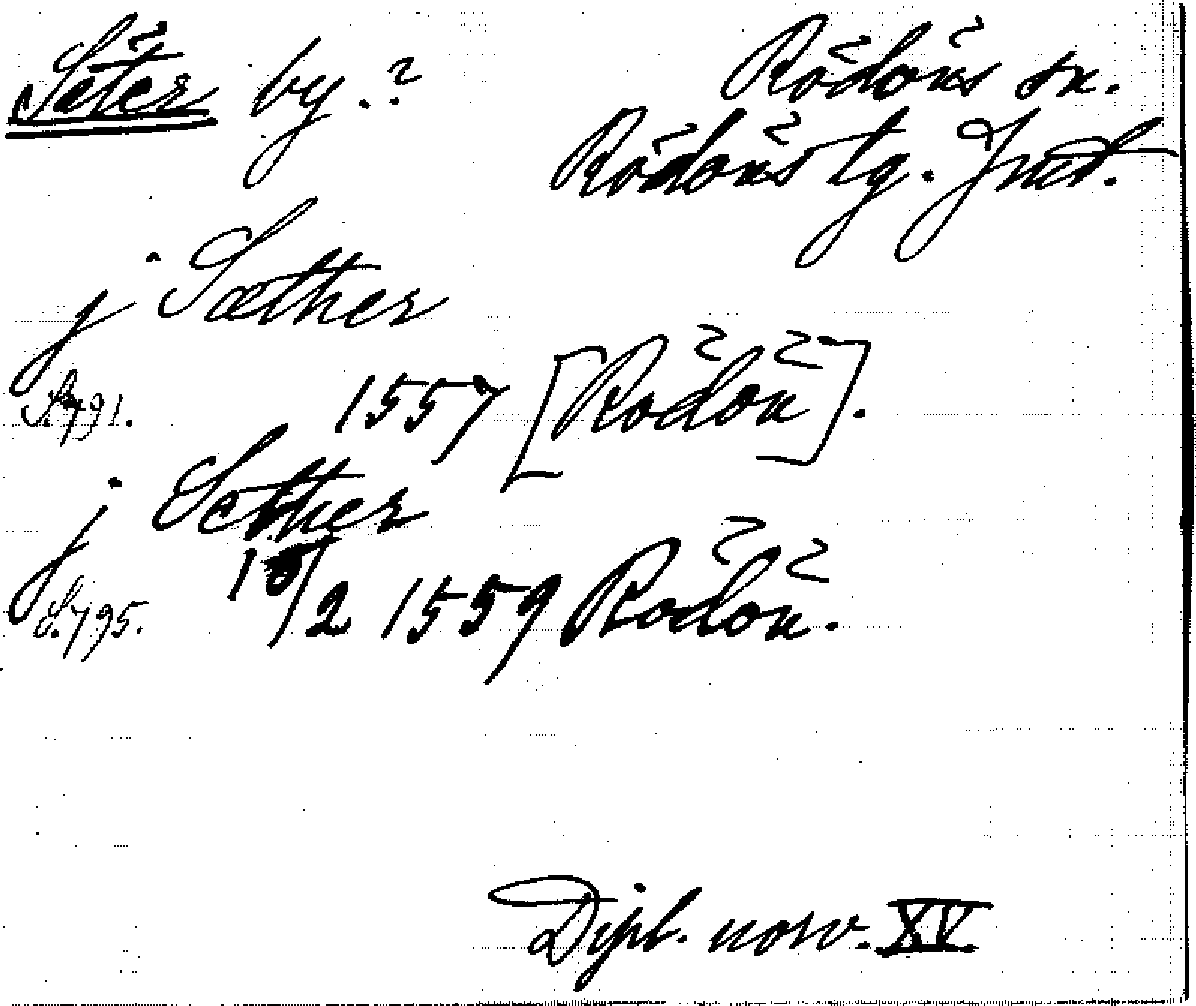 Säter by.? Rödöns sn.
Rödöns tg. Jmtl.
j Sæther
S.791. 1557 [Rödön].
j Sether
S.795. 15/2 1559 Rödön.
Dipl. norv. XV